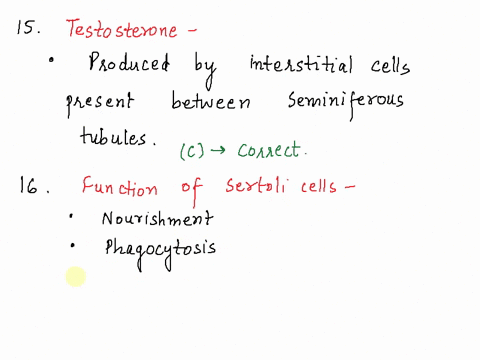 15. Testosterone -
• Produced by interstitial cells
present between seminiferous
tubules.
(C) → correct.
16. Function of sertoli cells -
• Nourishment
• Phagocytosis